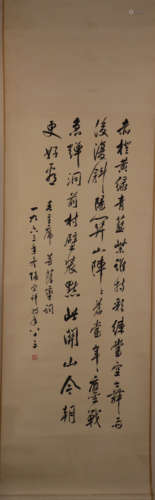 赤橙黃綠青藍紫誰持彩練當空舞雨
後復斜陽關山陣陣蒼當年鏖戰
急彈洞前村壁裝點此關山今朝
更好看
毛主席菩薩蠻詞
一九六三年